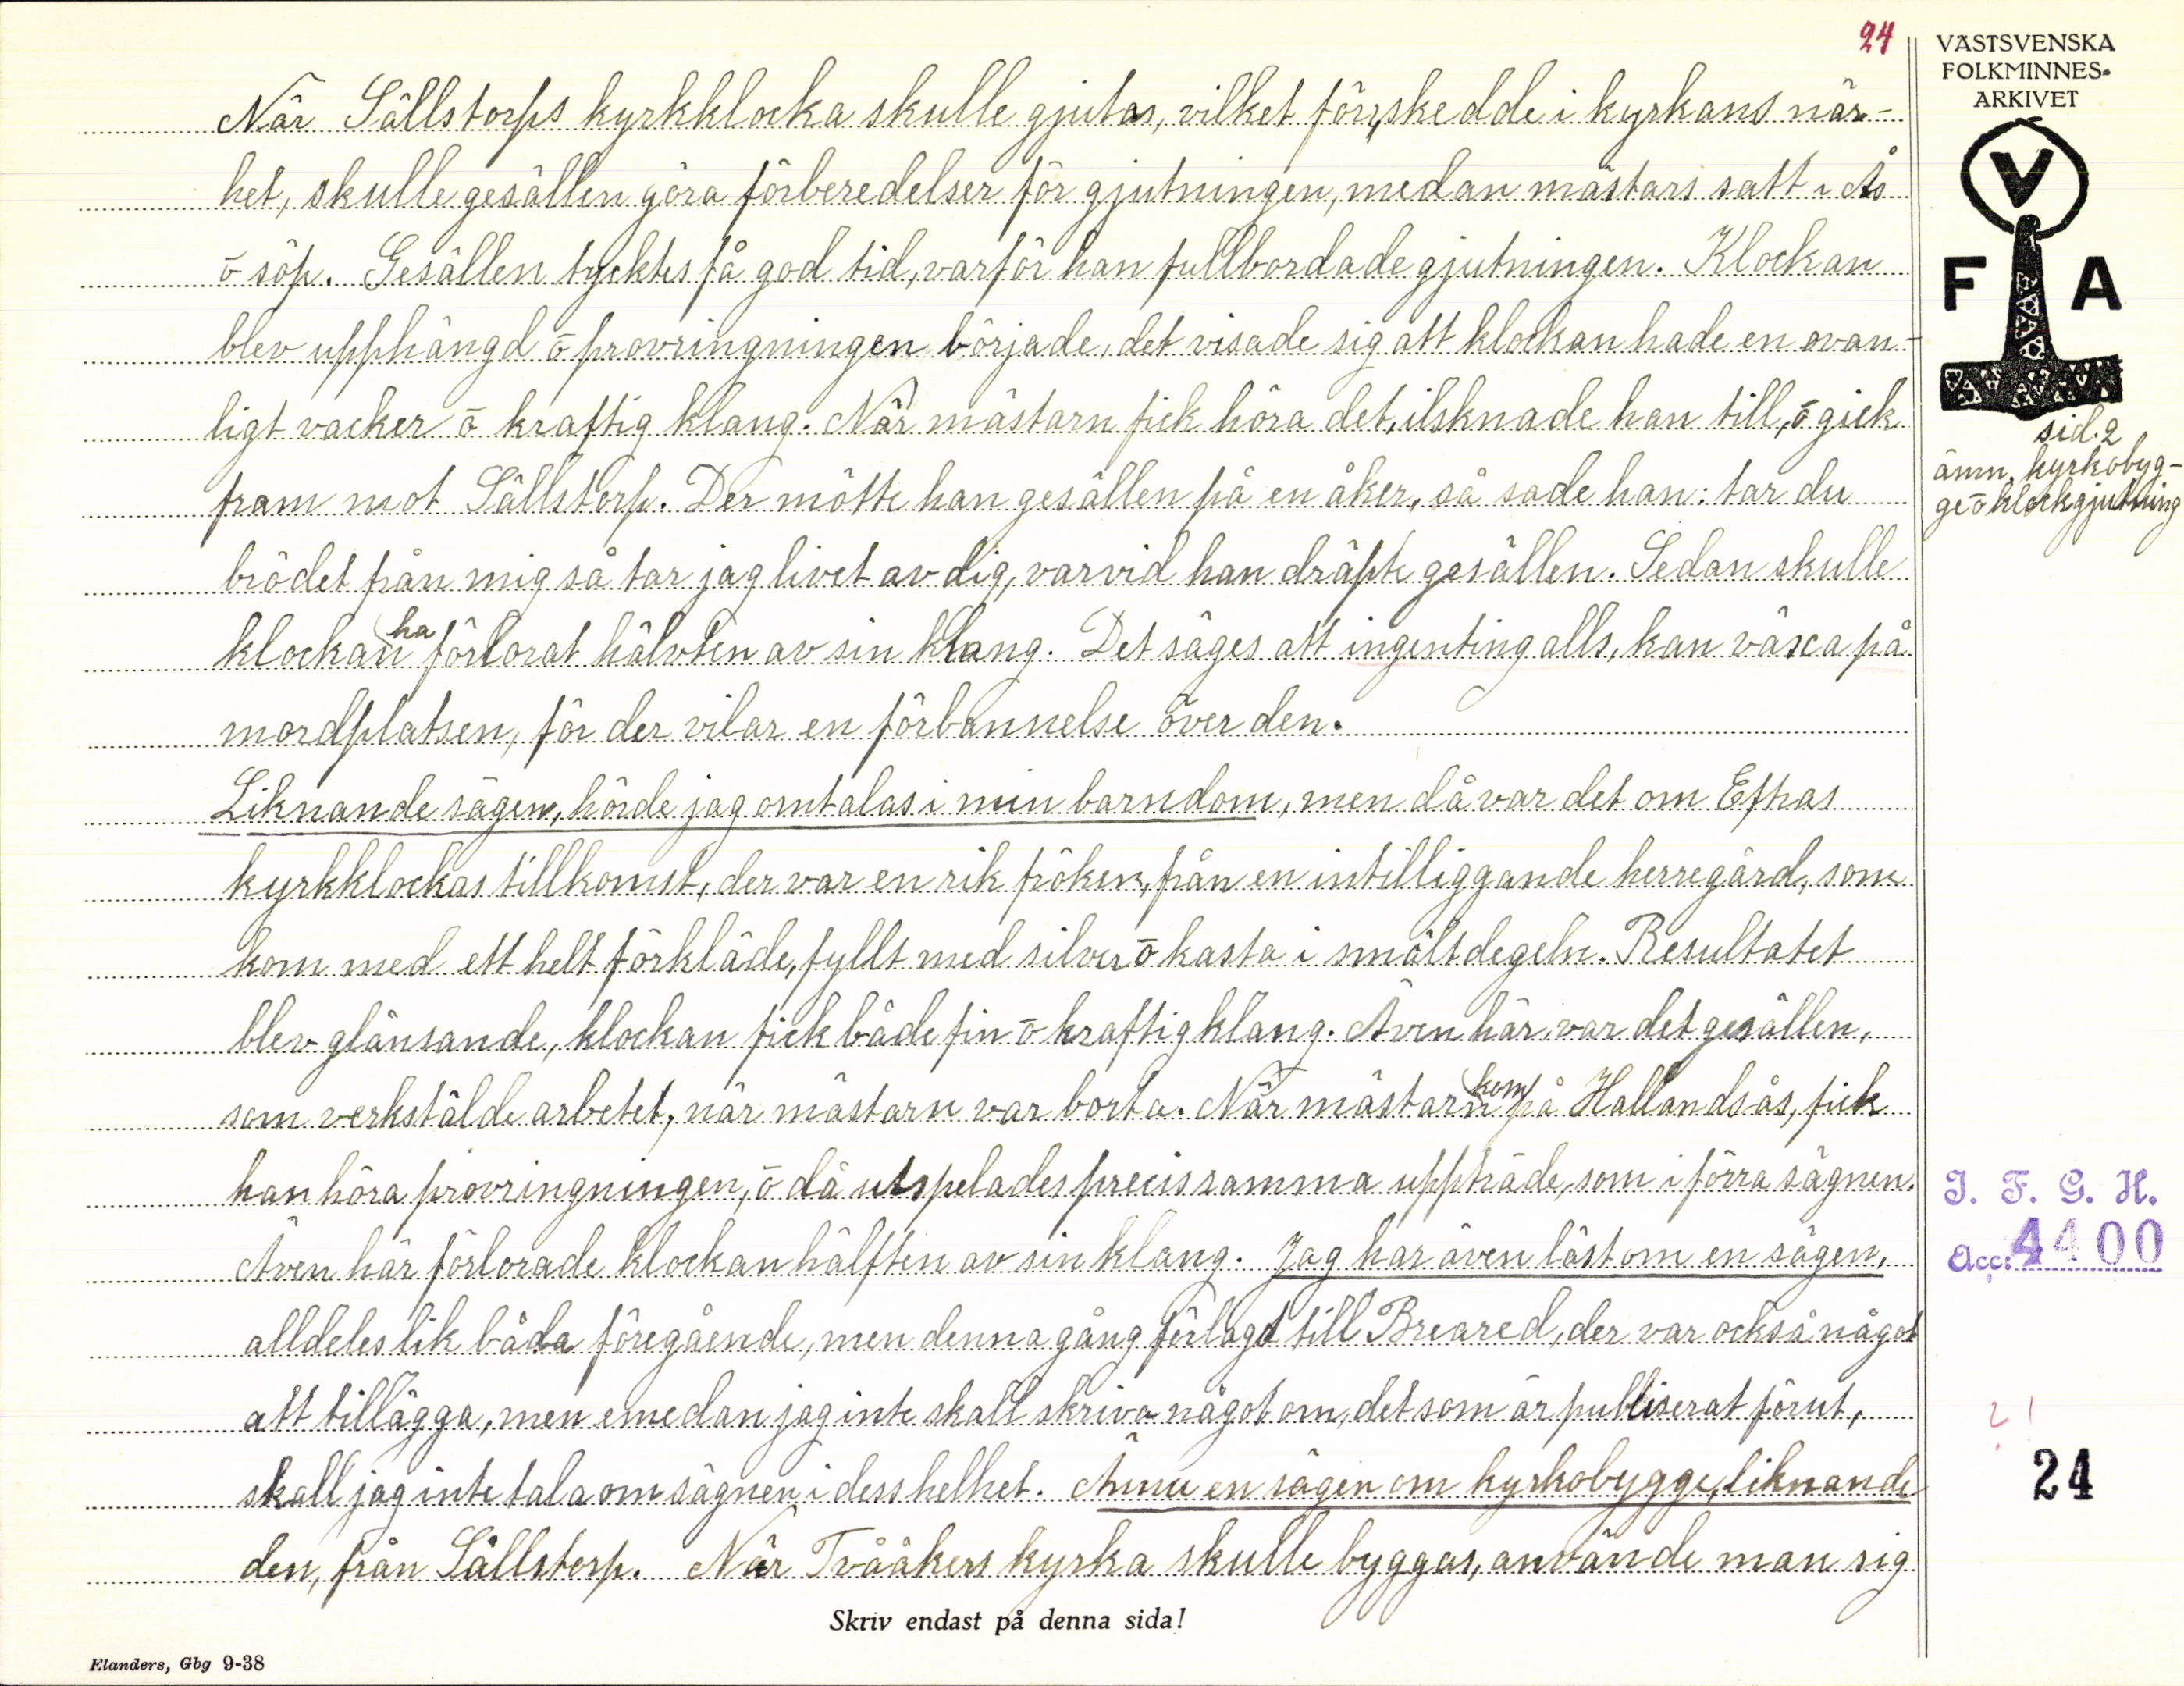 24
VÄSTSVENSKA
FOLKMINNES-
ARKIVET
V
F A
sid. 2
ämn, kyrkobyg-
ge ō klockgjutning
När Sällstorps kyrkklocka skulle gjutas, vilket förr, skedde i kyrkans när-
het, skulle gesällen göra förberedelser för gjutningen, medan mästarn satt i Ås
ō söp. Gesällen tycktes få god tid, varför han fullbordade gjutningen. Klockan
blev upphängd ō provringningen började, det visade sig att klockan hade en ovan-
ligt vacker ō kraftig klang. När mästarn fick höra det, ilsknade han till, ō gick
fram mot Sällstorp. Der mötte han gesällen på en åker, så sade han: tar du
brödet från mig så tar jag livet av dig, varvid han dräpte gesällen. Sedan skulle
klockan ha förlorat hälvten av sin klang. Det säges att ingenting alls, kan växa på
mordplatsen, för der vilar en förbannelse över den.
Liknande sägen, hörde jag omtalas i min barndom, men då var det om Eftras
kyrkklockas tillkomst, der var en rik fröken, från en intilliggande herregård, som
kom med ett helt förkläde, fyllt med silver ō kasta i smältdegeln. Resultatet
blev glänsande, klockan fick både fin ō kraftig klang. Även här var det gesällen,
som verkstälde arbetet, när mästarn var borta. När mästarn kom på Hallandsås, fick
han höra provringningen, ō då utspelades precis samma uppträde, som i förra sägnen.
Även här förlorade klockan hälften av sin klang. Jag har även läst om en sägen,
alldeles lik båda föregående, men denna gång förlagd till Breared, der var också något
att tillägga, men emedan jag inte skall skriva något om, det som är publiserat förut,
skall jag inte tala om sägnen i dess helhet. Ännu en sägen om kyrkobygge, liknande
den, från Sällstorp. När Tvååkers kyrka skulle byggas, använde man sig
I. F. G. H.
Acc: 4400
24
Skriv endast på denna sida!
Elanders, Gbg 9-38